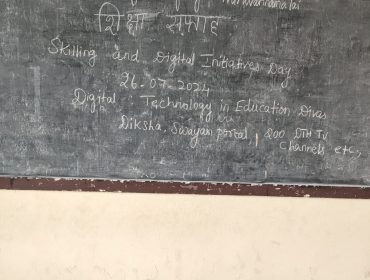 Tiruvannamalai
शिक्षा सप्ताह
Skilling and Digital Initiatives Day
26-07-2024
Digital Technology in Education Divas
Diksha, Swayam portal, 200 DTH TV
Channels etc,